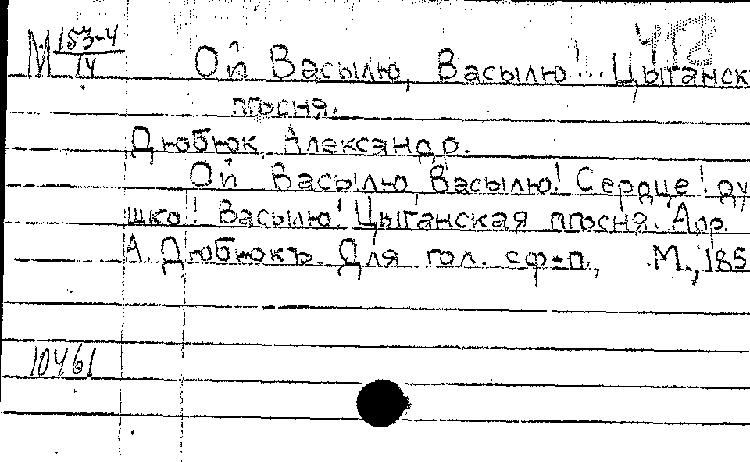 М 153-4 Ой Васылю, Васылю!... Цыганск
14 песня.
Дюбюк, Александр.
Ой Васылю Васылю! Сердце! ду
шко! Васылю! Цыганская песня. Арр.
А. Дюбюкъ. Для гол. с ф-п., М., 185
10461